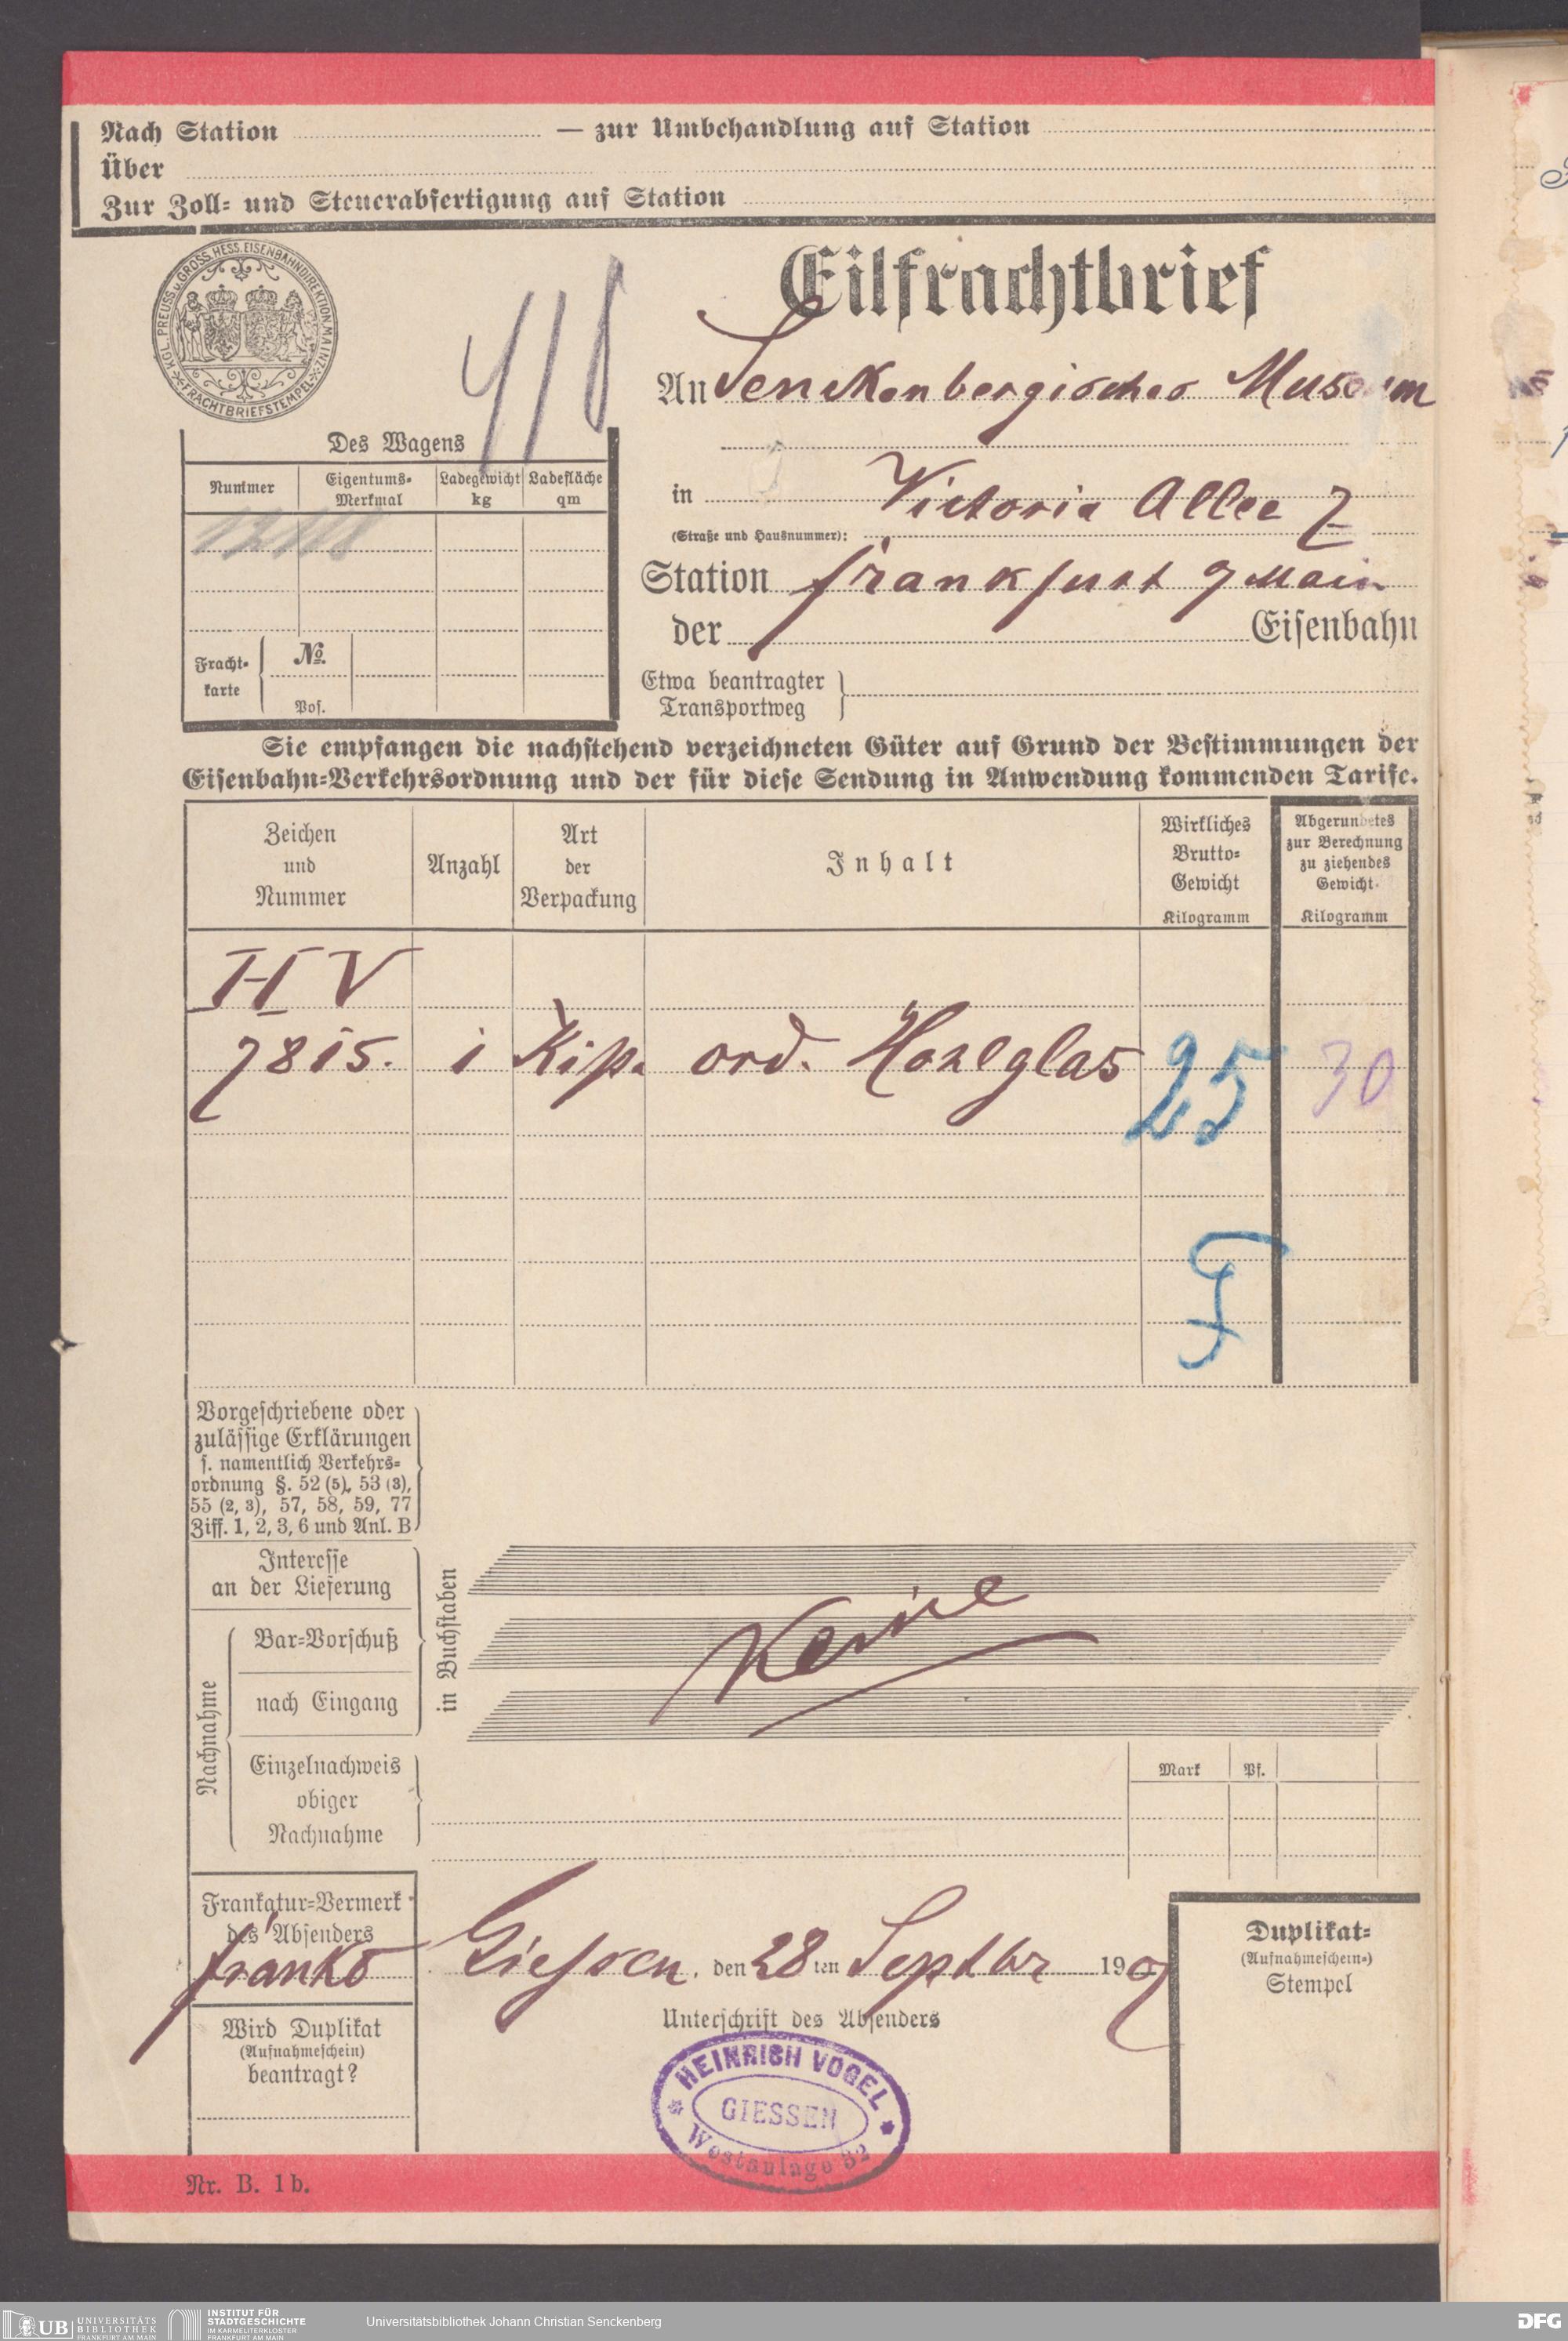 Nach Station — zur Umbehandlung auf Station
Über
Zur Zoll- und Steuerabfertigung auf Station
KGL. PREUSS. u. GROSS. HESS. EISENBAHNDIREKTION MAINZ
FRACHTBRIEFSTEMPEL
Eilfrachtbrief
An Senckenbergisches Museum
in Victoria Allee 7
(Straße und Hausnummer):
Station Frankfurt a/Main
der Eisenbahn
Etwa beantragter
Transportweg
Des Wagens
Nummer Eigentums-Merkmal Ladegewicht kg Ladefläche qm
Fracht-karte No.
Pos.
Sie empfangen die nachstehend verzeichneten Güter auf Grund der Bestimmungen der
Eisenbahn-Verkehrsordnung und der für diese Sendung in Anwendung kommenden Tarife.
Zeichen und Nummer Anzahl Art der Verpackung Inhalt Wirkliches Brutto-Gewicht Kilogramm Abgerundetes zur Berechnung zu ziehendes Gewicht Kilogramm
H V
7815. 1 Kip. ord. Hohlglas 25 30
Vorgeschriebene oder
zulässige Erklärungen
s. namentlich Verkehrs-
ordnung §. 52 (5), 53 (3),
55 (2, 3), 57, 58, 59, 77
Ziff. 1, 2, 3, 6 und Anl. B
Interesse
an der Lieferung
in Buchstaben
Keine
Nachnahme
Bar-Vorschuß
nach Eingang
Einzelnachweis
obiger
Nachnahme
Mark Pf.
Frankatur-Vermerk
des Absenders
franko
Giessen, den 28ten Septbr 1907
Unterschrift des Absenders
Duplikat-
(Aufnahmeschein-)
Stempel
Wird Duplikat
(Aufnahmeschein)
beantragt?
HEINRICH VOGEL
GIESSEN
Westanlage 32
Nr. B. 1b.
UB UNIVERSITÄTS
BIBLIOTHEK
FRANKFURT AM MAIN
INSTITUT FÜR
STADTGESCHICHTE
IM KARMELITERKLOSTER
FRANKFURT AM MAIN
Universitätsbibliothek Johann Christian Senckenberg
DFG